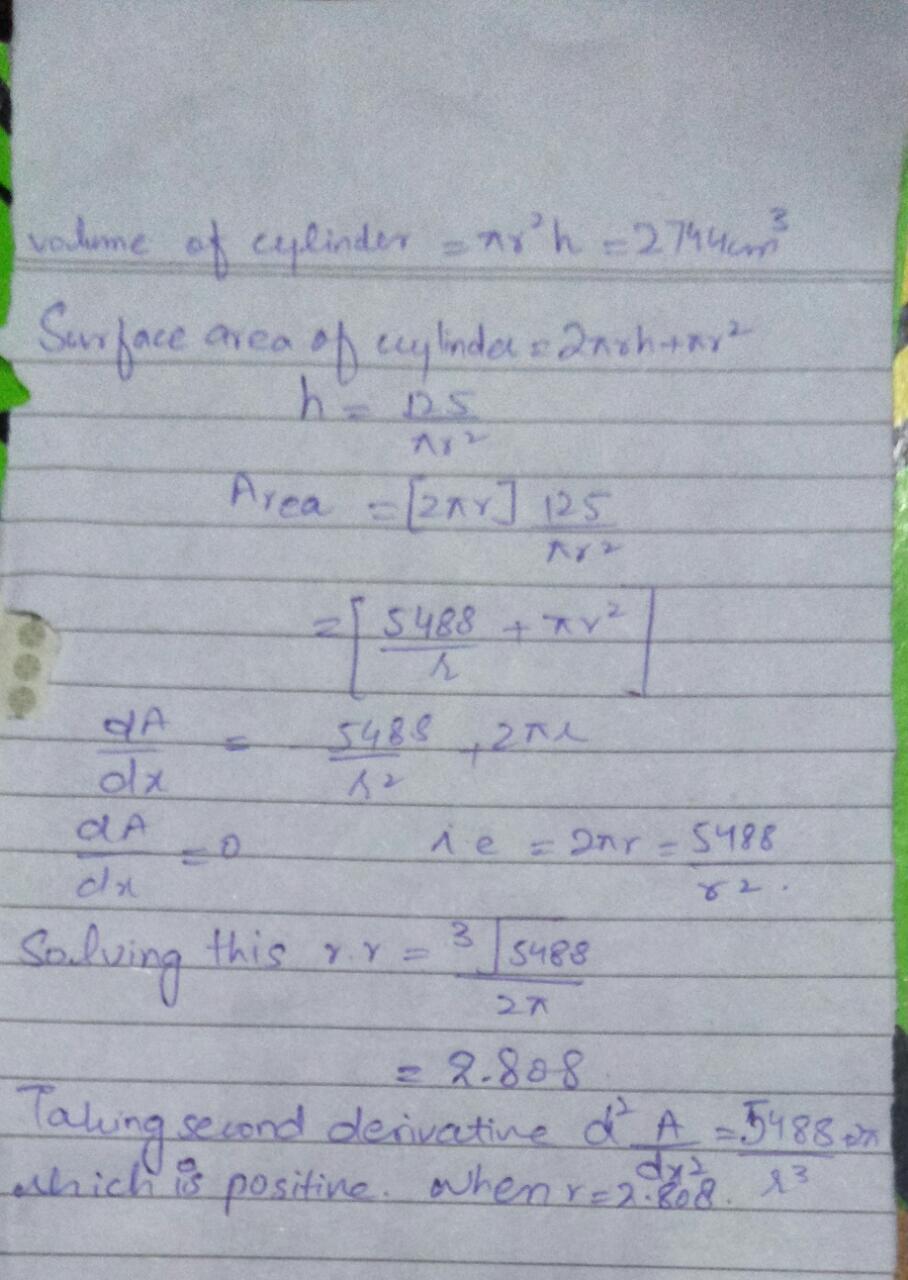 volume of cylinder = πr²h = 2744cm³
Surface area of cylinder = 2πrh+πr²
h = 125
πr²
Area = [2πr] 125
πr²
= [ 5488 + πr² ]
r
dA = 5488 + 2πr
dx r²
dA = 0 i e = 2πr = 5488
dx r2.
Solving this r.r = 3√5488
2π
= 2.808
Taking second derivative d² A = 5488 2π
which is positive. when r=2.808. dx² r³